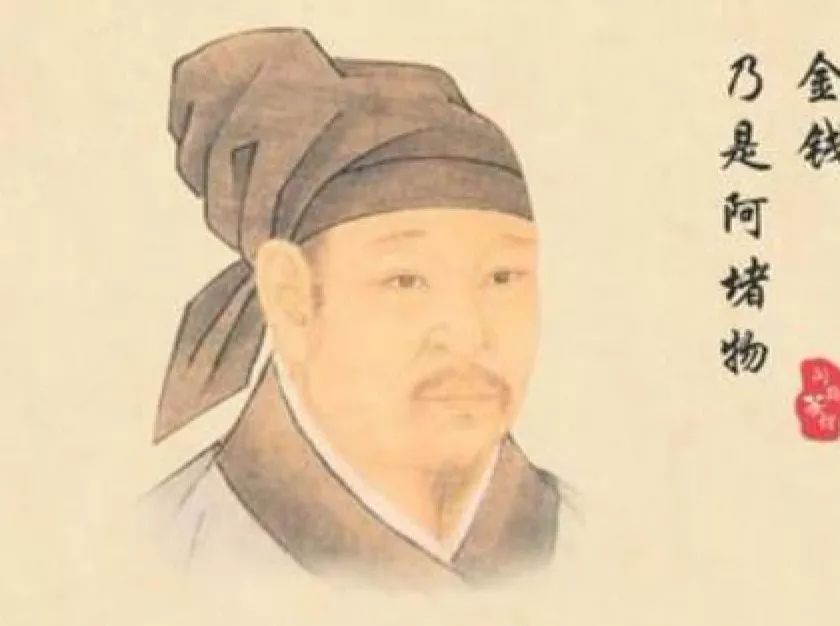 金钱
乃是阿堵物